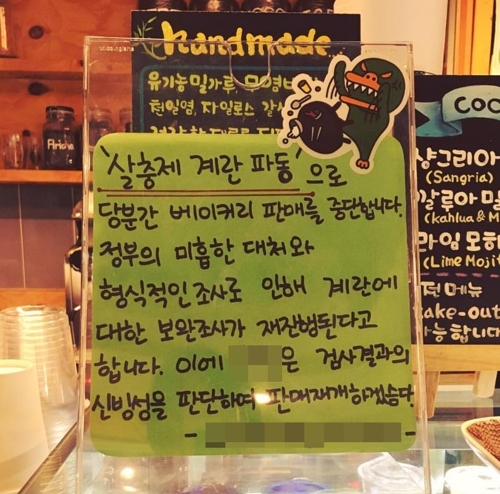 handmade
유기농밀가루,
천일염, 자일로스
'살충제 계란 파동'으로
당분간 베이커리 판매를 중단합니다.
정부의 미흡한 대처와
형식적인 조사로 인해 계란에
대한 보완조사가 재진행된다고
합니다. 이에 은 검사결과의
신빙성을 판단하여 판매재개하겠습니다.
COC
샹그리아
(Sangria)
깔루아 밀
(Kahlua & M
라임 모히
(Lime Mojit
전메뉴
ake-out
능합니다